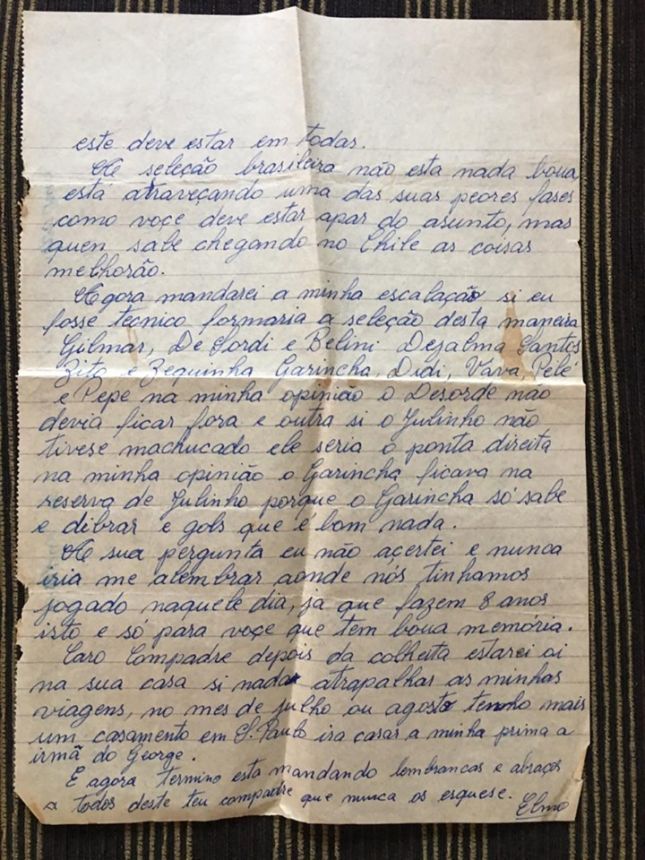 este deve estar em todas.
A seleção brasileira não esta nada boua
está atraveçando uma das suas peores fases
como voçe deve estar apar do asunto, mas
quen sabe chegando no Chile as coisas
melhorão.
Agora mandarei a minha escalação si eu
fosse tecnico formaria a seleção desta maneira
Gilmar, De Sordi e Belini Dejalma Santos
Zito e Zequinha Garincha, Didi, Vavá, Pelé
e Pepe na minha opinião o Desorde não
devia ficar fora e outra si o Julinho não
tivese machucado ele seria o ponta direita
na minha opinião o Garincha ficava na
reserva de Julinho porque o Garincha só sabe
e dibrar e gols que é bom nada.
A sua pergunta eu não açertei e nunca
iria me alembrar aonde nós tinhamos
jogado naquele dia, ja que fazem 8 anos
isto e só para voçe que tem boua memória.
Caro Compadre depois da colheita estarei ai
na sua casa si nada atrapalhar as minhas
viagens, no mes de julho ou agosto tenho mais
um casamento em S. Paulo ira casar a minha prima a
irmã do George.
E agora termino esta mandando lembrancas e abraços
a todos deste teu compadre que nunca os esquese.
Elmo